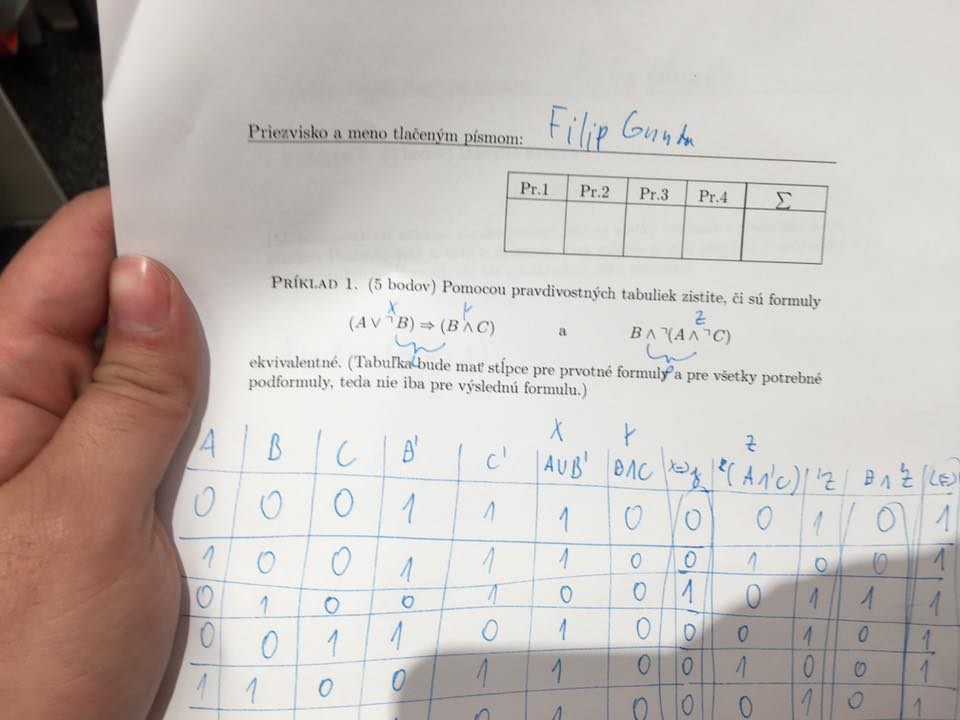 Priezvisko a meno tlačeným písmom: Filip
Pr.1 Pr.2 Pr.3 Pr.4 ∑
PRÍKLAD 1. (5 bodov) Pomocou pravdivostných tabuliek zistite, či sú formuly
X Y Z
(A ∨ ¬B) ⇒ (B ∧ C) a B ∧ ¬(A ∧ ¬C)
ekvivalentné. (Tabuľka bude mať stĺpce pre prvotné formuly a pre všetky potrebné
podformuly, teda nie iba pre výslednú formulu.)
X Y Z
A B C B' C' A∪B' B∧C X⇒y (A∧'C) 'Z B∧'Z
0 0 0 1 1 1 0 0 0 1 0 1
1 0 0 1 1 1 0 0 1 0 0 1
0 1 0 0 1 0 0 1 0 1 1 1
0 0 1 1 0 1 0 0 0 1 0 1
1 1 0 0 1 1 0 0 1 0 0 1
0 1 0 0 0 1 0 1